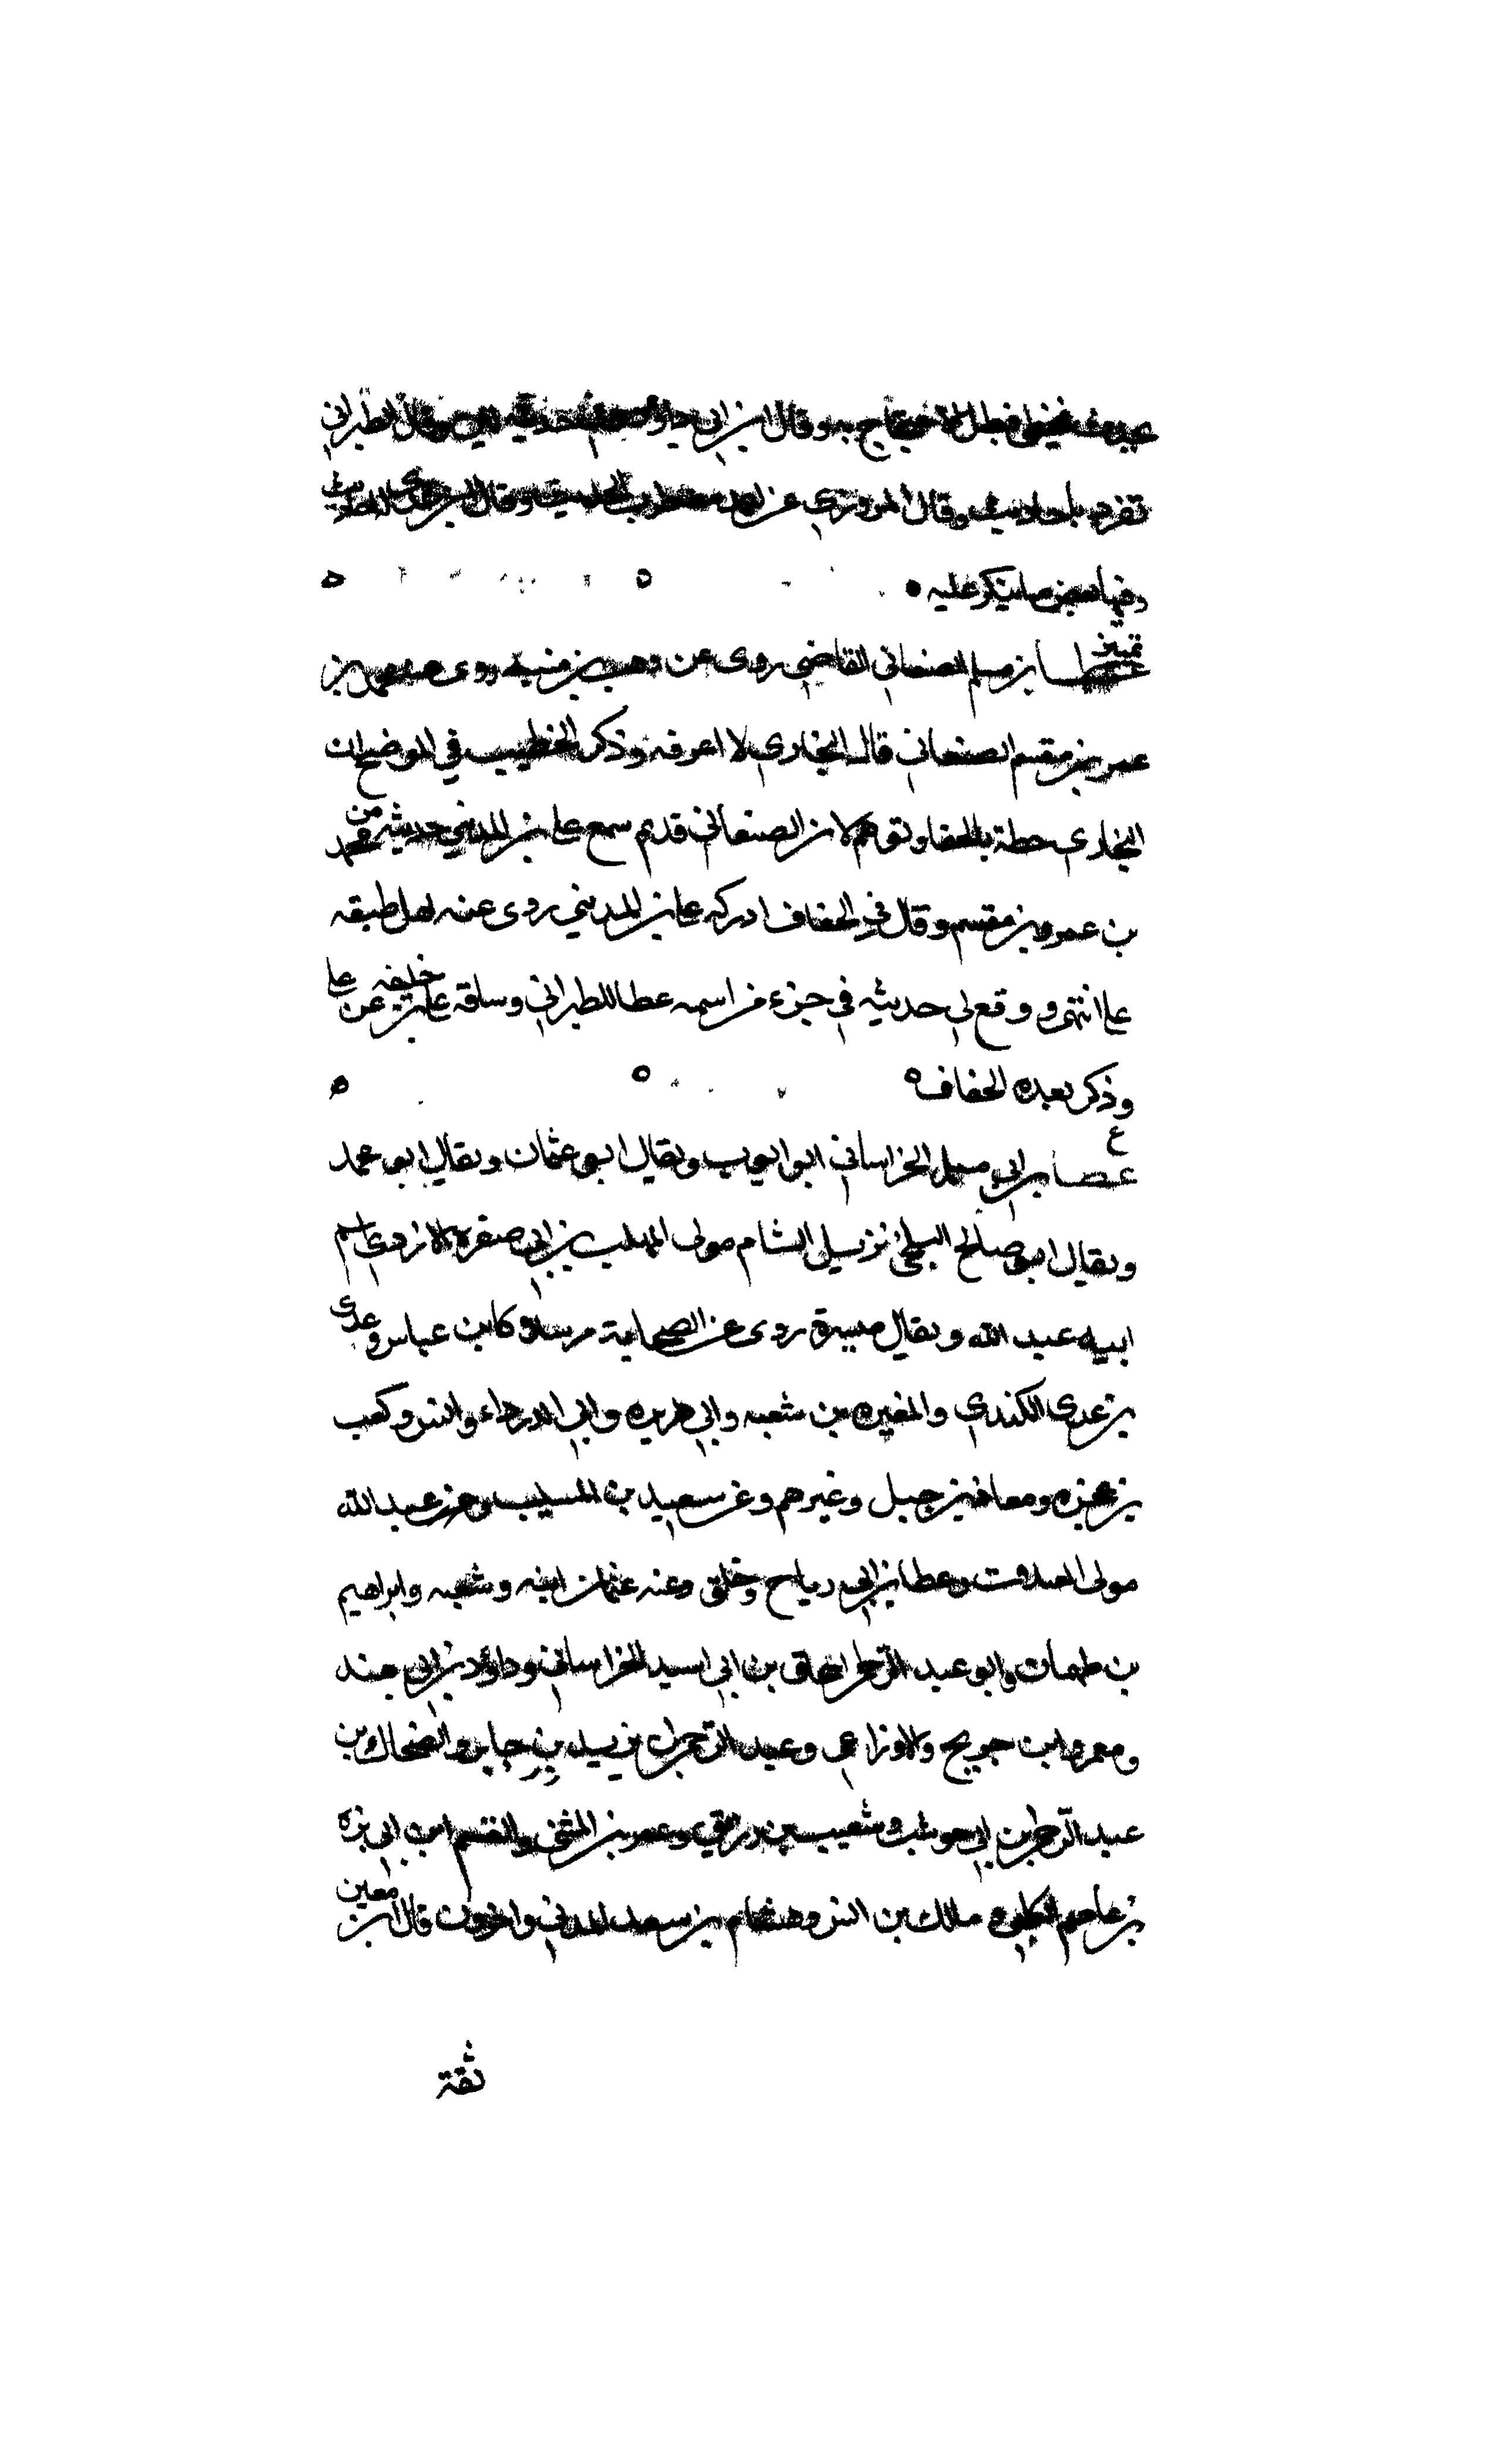 فبطل الاحتجاج به وقال ابن ابي داود حديثه لين وقال الطبراني
تفرد بأحاديث وقال المروزي عن احمد مضطرب الحديث وقال
وفيها بعض ما ينكر عليه ه
تمييز
عطا بن مسلم الصنعاني القاضي روى عن وهب بن منبه روى عنه محمد بن
عمرو بن مقسم الصنعاني قال البخاري لا اعرفه وذكر الخطيب في الموضح ان
البخاري خلطه بالخفاف وتوهم لان الصنعاني قديم سمع علي بن المديني حديثه من محمد
بن عمرو بن مقسم وقال في الخفاف ادركه علي بن المديني روى عنه اهل طبقه
علي انتهى ووقع لي حديثه في جزء من اسمه عطا للطبراني وساقه علي بن خليفه عن علي
وذكر بعده الخفاف ه
ع
عطا بن ابي مسلم الخراساني ابو ايوب ويقال ابو عثمان ويقال ابو محمد
ويقال ابو صالح البلخي نزيل الشام مولى المهلب بن ابي صفرة الازدي اسم
ابيه عبد الله ويقال ميسرة روى عن الصحابة مرسلا كابن عباس وعدى
بن عدى الكندي والمغيره بن شعبه وابي هريره وابي الدرداء وانس وكعب
بن عجره ومعاذ بن جبل وغيرهم وعن سعيد بن المسيب وعن عبد الله
مولى وعطا بن ابي رباح وخلق وعنه عثمان ابنه وشعبه وابراهيم
بن طهمان وابو عبد الرحمن اسحاق بن ابي اسيد الخراساني وداود بن ابي هند
ومعمر وابن جريج والاوزاعي وعبد الرحمن بن يزيد بن جابر والضحاك بن
عبد الرحمن بن ابي حوشب وشعيب بن رزيق وعمر بن المثنى والقسم ابن ابي بزه
بن عاصم الكلبي ومالك بن انس وهشام بن سعد المدني واخرون قال ابن معين
ثقة